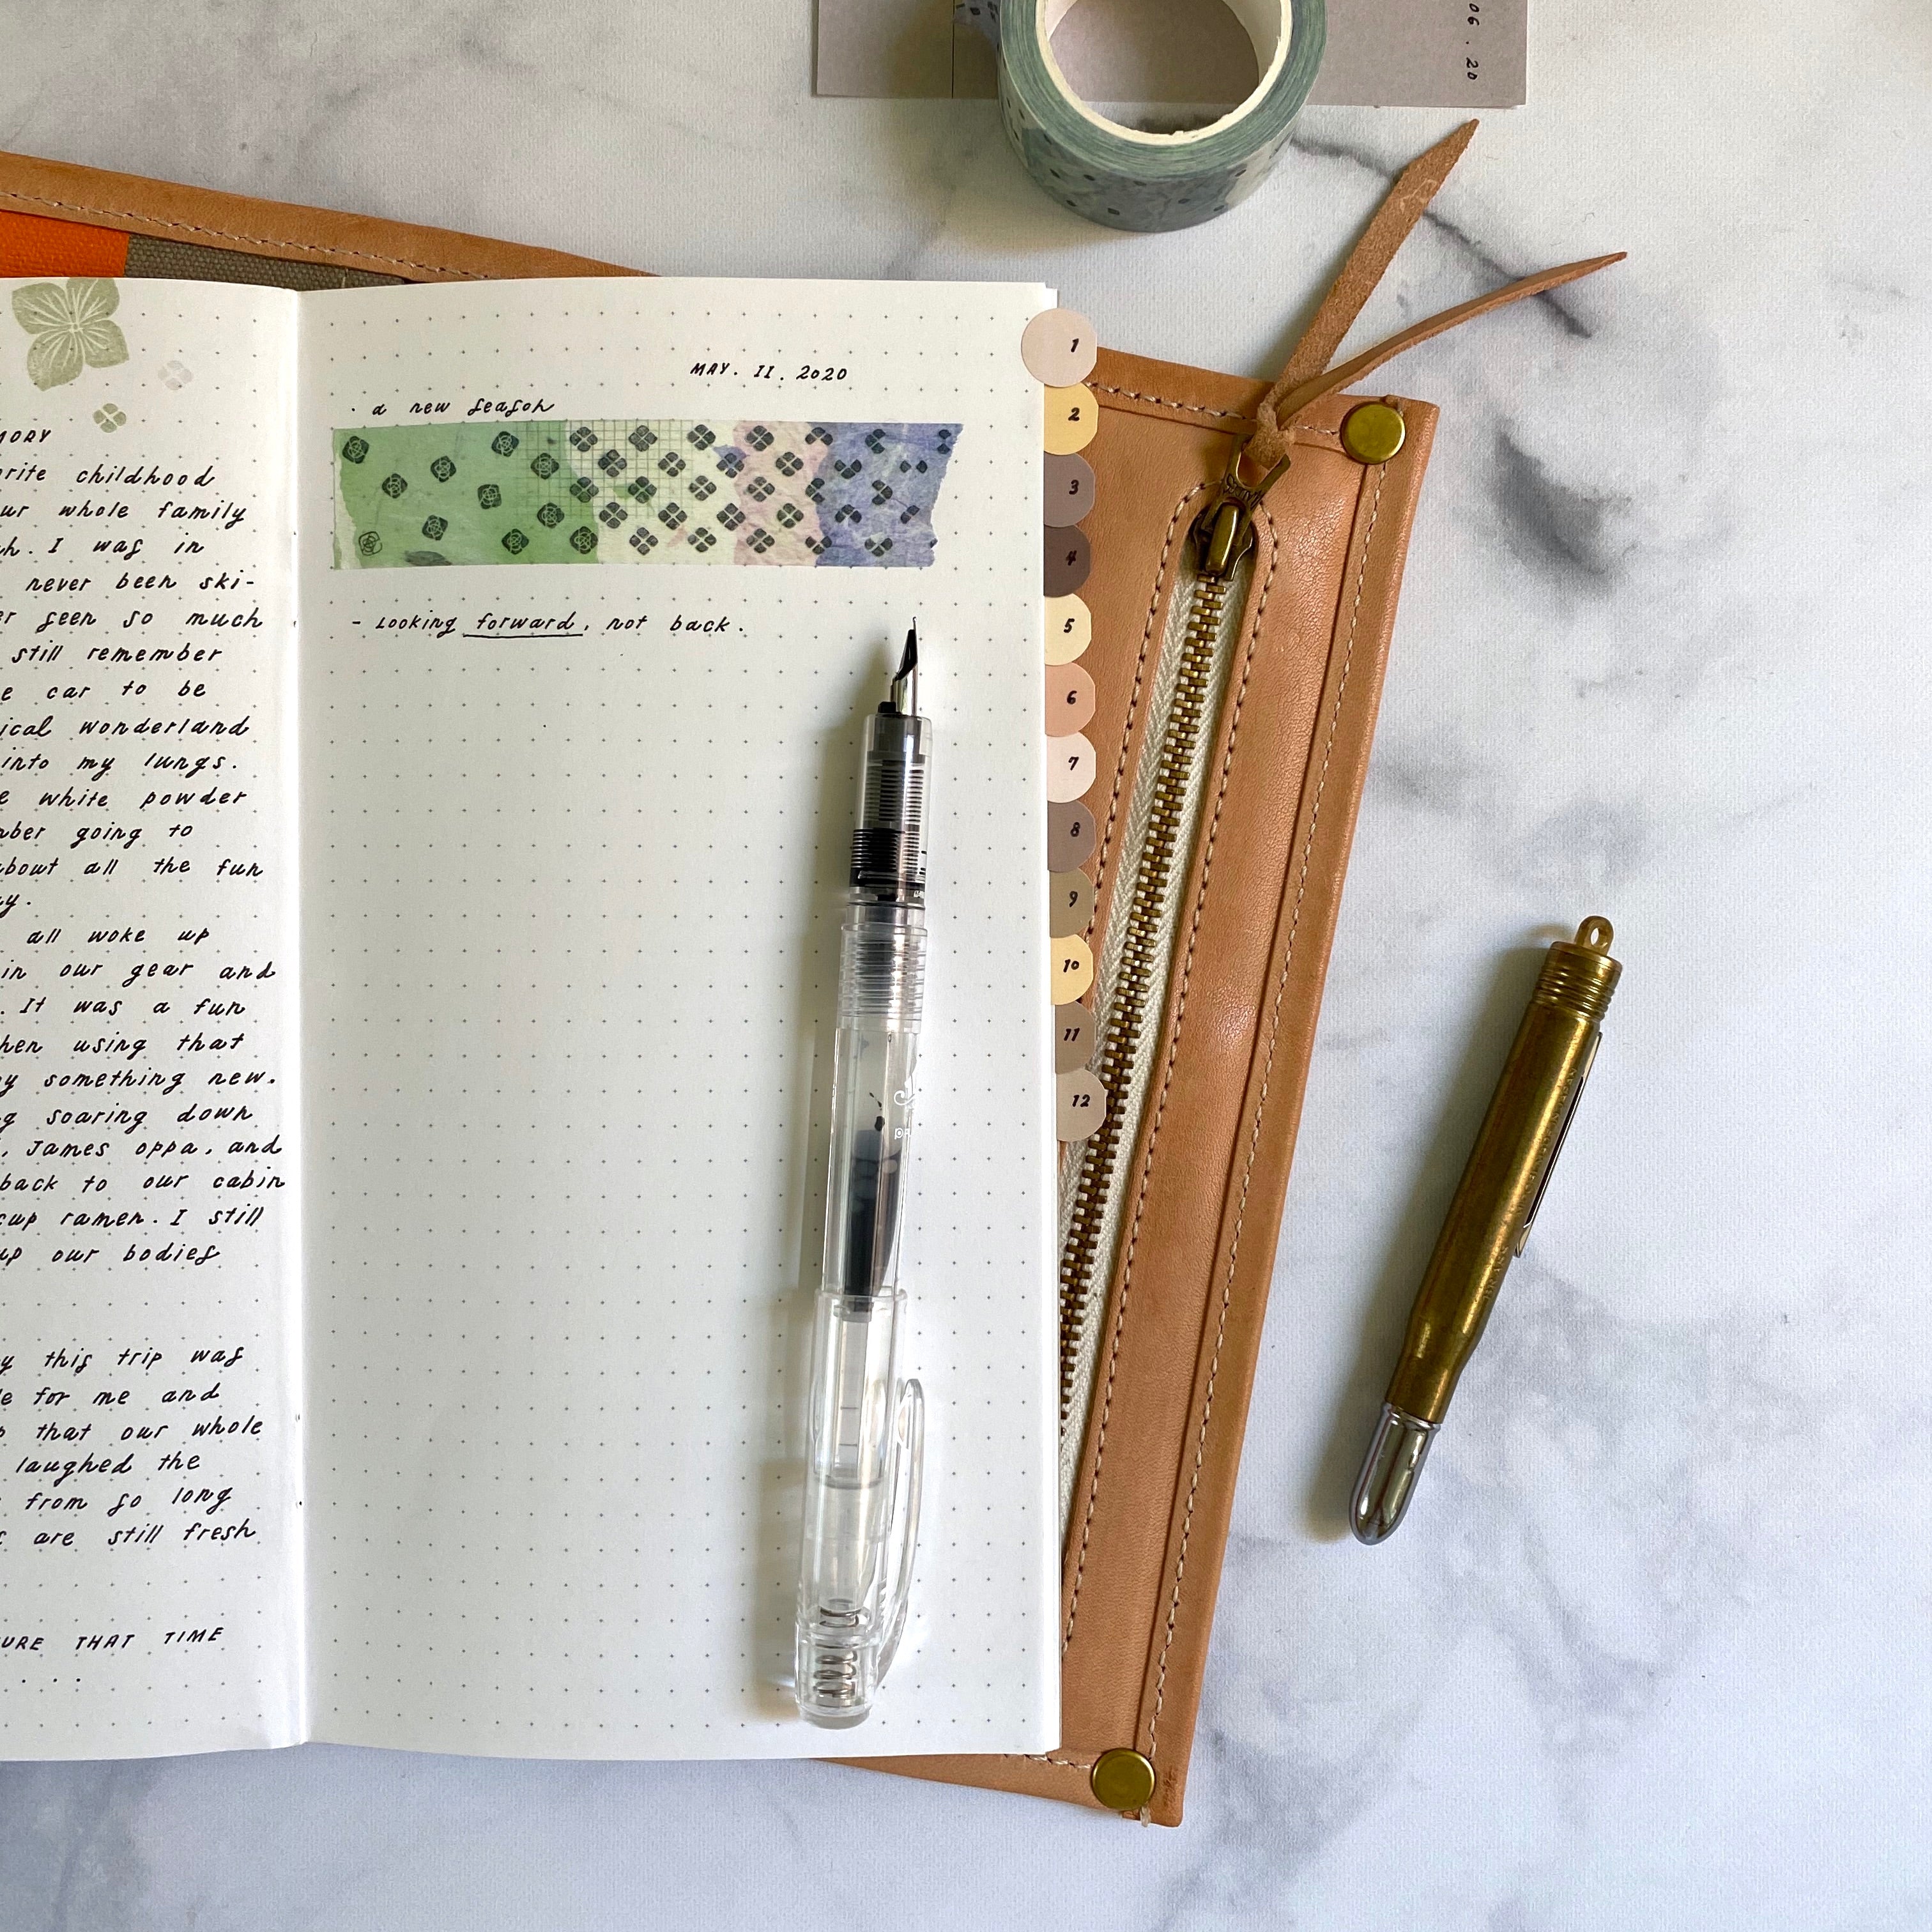 childhood
whole family
I was in
never been ski-
seen so much
still remember
car to be
wonderland
into my lungs.
white powder
going to
about all the fun
all woke up
in our gear and
. It was a fun
using that
something new.
soaring down
, James oppa, and
back to our cabin
cup ramen. I still
up our bodies
this trip was
for me and
that our whole
laughed the
from so long
are still fresh
THAT TIME
. . .
MAY. 11. 2020
· a new season
- Looking forward, not back.
1
2
3
4
5
6
7
8
9
10
11
12
06 . 20